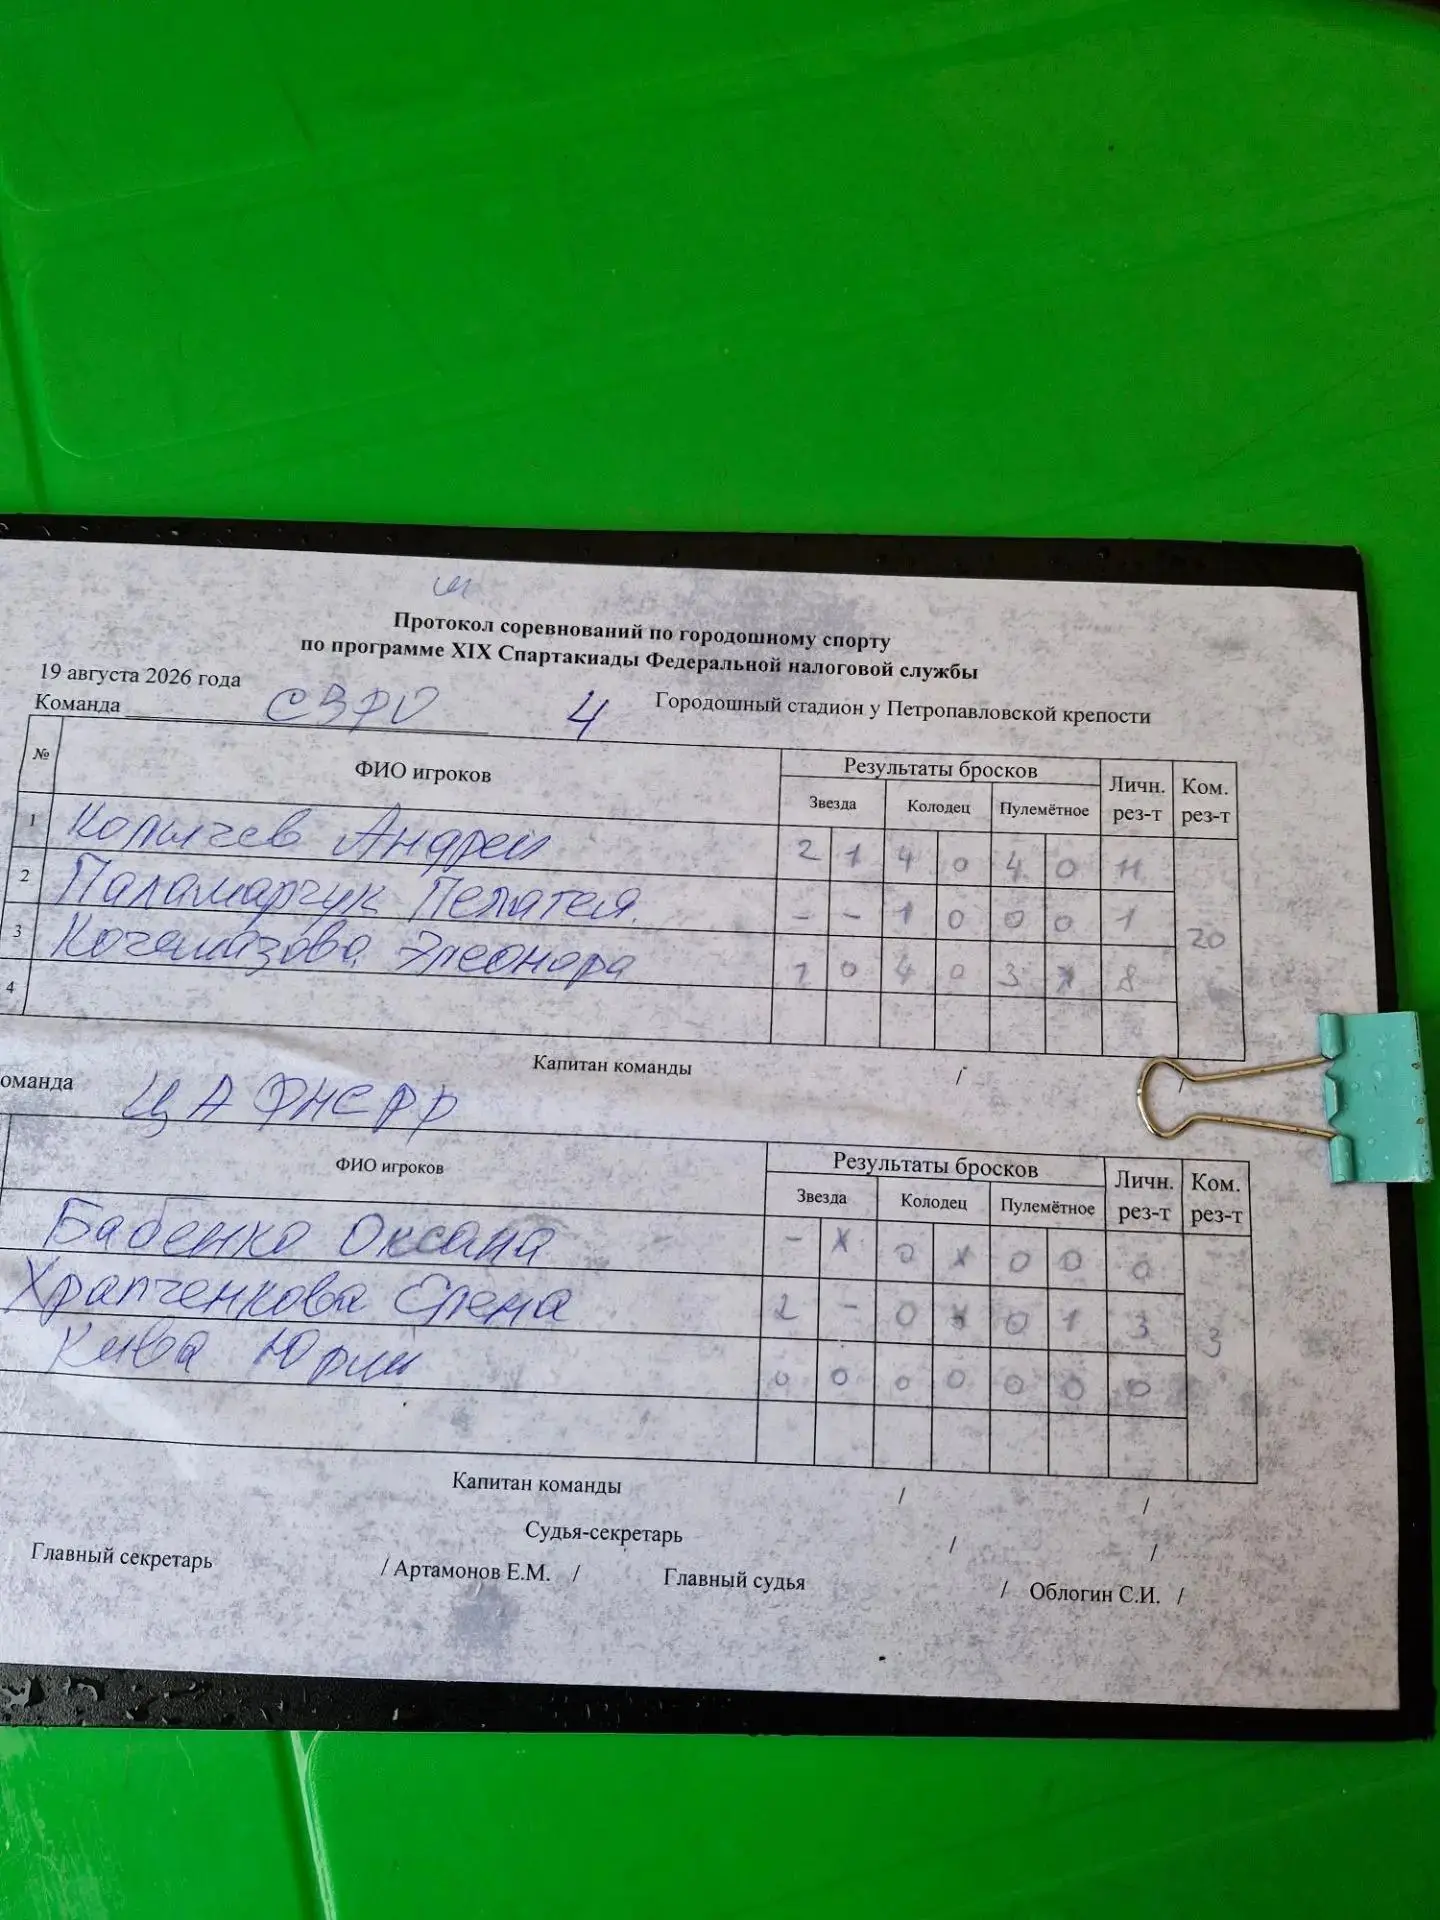 Протокол соревнований по городошному спорту
по программе XIX Спартакиады Федеральной налоговой службы
19 августа 2026 года
Команда СЗРО 4 Городошный стадион у Петропавловской крепости
№ ФИО игроков Результаты бросков Личн. рез-т Ком. рез-т
Звезда Колодец Пулемётное
1 Копычев Андрей 2 1 4 0 4 0 11
2 Паламарчук Пелагея - - 1 0 0 0 1 20
3 Кочемазова Элеонора 1 0 4 0 3 8
4
Капитан команды / /
оманда ЦА ФНС РФ
ФИО игроков Результаты бросков Личн. рез-т Ком. рез-т
Звезда Колодец Пулемётное
Бабенко Оксана - X 0 X 0 0 0
Храпченкова Елена 2 - 0 X 0 1 3 3
Кива Юрий 0 0 0 0 0 0 0
Капитан команды / /
Судья-секретарь / /
Главный секретарь / Артамонов Е.М. / Главный судья / Облогин С.И. /